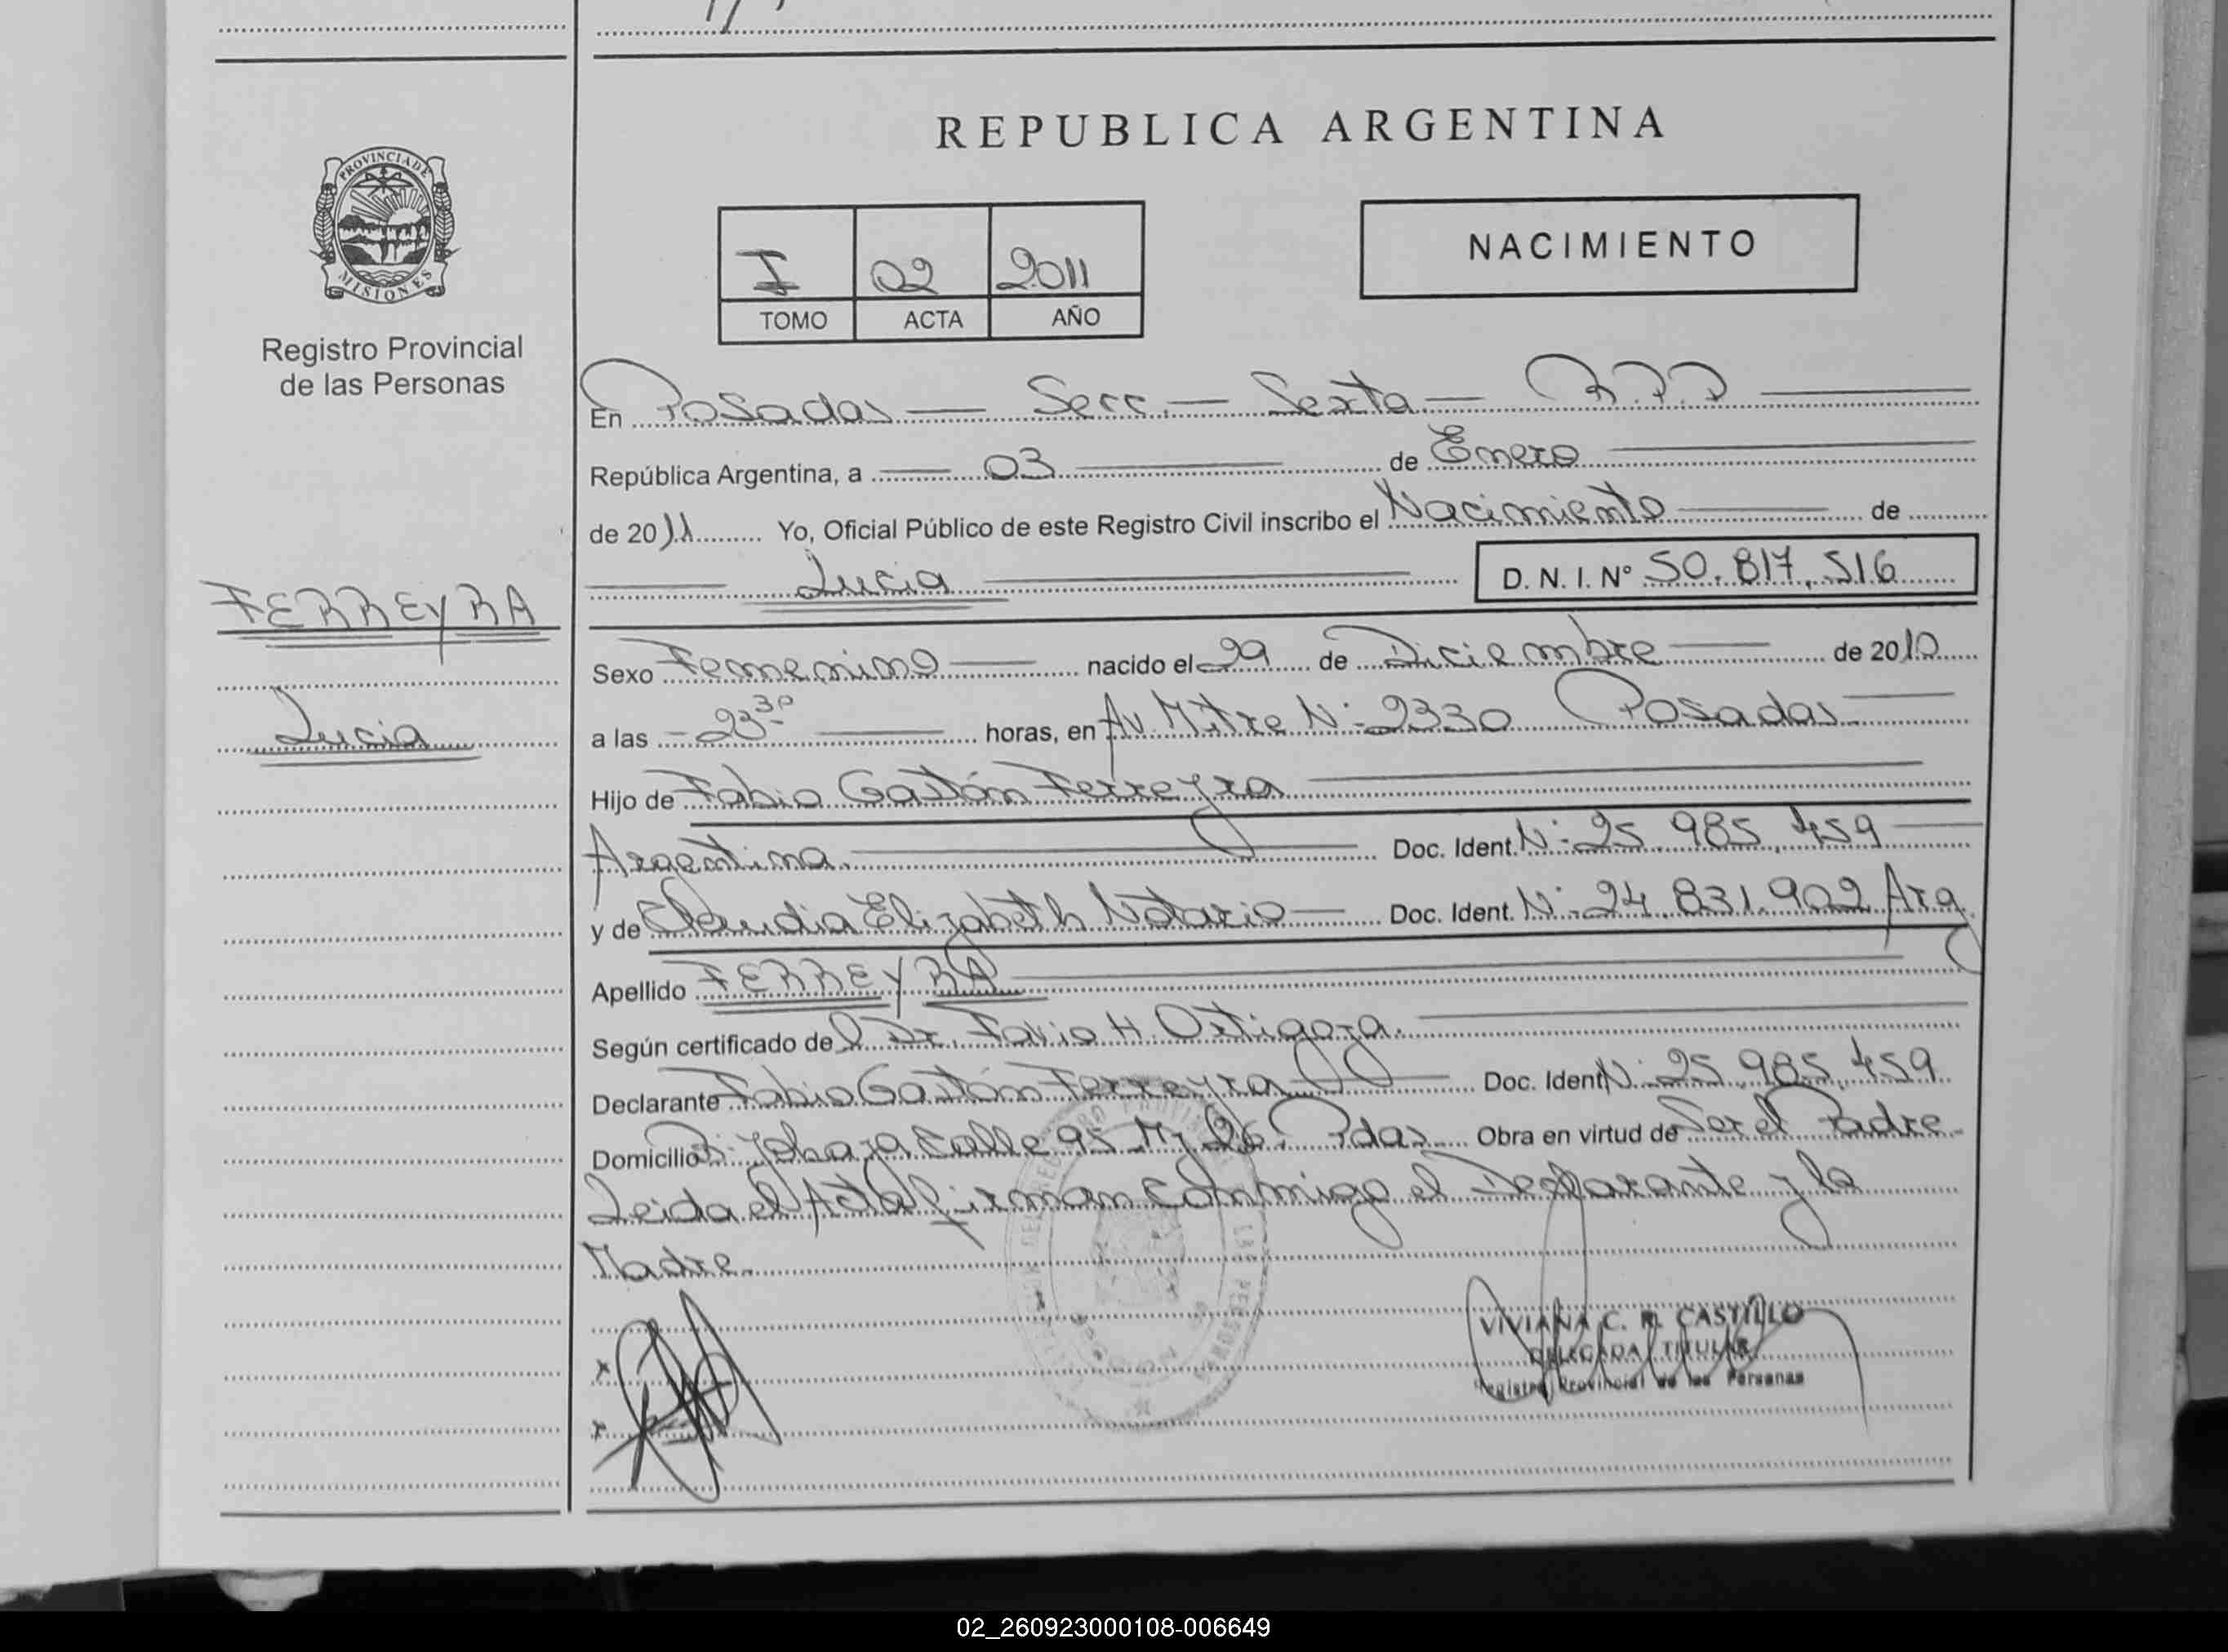 REPUBLICA ARGENTINA
PROVINCIA DE
MISIONES
Registro Provincial
de las Personas
I 02 2011
TOMO ACTA AÑO
NACIMIENTO
En Posadas — Secc. — Sexta — R.P.P
República Argentina, a 03 de Enero
de 2011 Yo, Oficial Público de este Registro Civil inscribo el Nacimiento de
Lucia D. N. I. N° 50.817.516
FERREYRA
Lucia
Sexo Femenino nacido el 29 de Diciembre de 2010
a las 23³⁰ horas, en Av. Mitre N° 2330 Posadas
Hijo de Fabio Gastón Ferreyra
Argentina. Doc. Ident. N° 25.985.459
y de Claudia Elizabeth Notario Doc. Ident. N° 24.831.902 Arg
Apellido FERREYRA
Según certificado del Dr. Favio H. Ortigoza.
Declarante Fabio Gastón Ferreyra Doc. Ident N° 25.985.459
Domicilio B° Calle 95 Mz 26. Pdas Obra en virtud de Ser el Padre
Leida el Acta firman conmigo el Declarante y la
Madre.
x
x
VIVIANA C. R. CASTILLO
DELEGADA TITULAR
Registro Provincial de las Personas
02_260923000108-006649